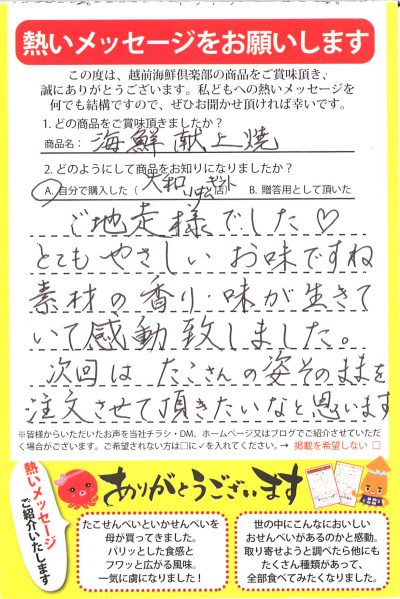 熱いメッセージをお願いします
この度は、越前海鮮倶楽部の商品をご賞味頂き、
誠にありがとうございます。私どもへの熱いメッセージを
何でも結構ですので、ぜひお聞かせ頂ければ幸いです。
1. どの商品をご賞味頂きましたか?
商品名: 海鮮献上焼
2. どのようにして商品をお知りになりましたか?
A. 自分で購入した( 大和 ギフト 店) B. 贈答用として頂いた
ご地走様でした♡
とてもやさしい お味ですね
素材の香り・味が生きて
いて感動致しました。
次回は たこさんの姿そのままを
注文させて頂きたいなと思います
※皆様からいただいたお声を当社チラシ・DM、ホームページ又はブログでご紹介させていただ
く場合がございます。ご希望されない方は□に✓を入れてください。→ 掲載を希望しない □
熱いメッセージ
ご紹介いたします
ありがとうございます
たこせんべいといかせんべいを
母が買ってきました。
パリッとした食感と
フワッと広がる風味。
一気に虜になりました!
世の中にこんなにおいしい
おせんべいがあるのかと感動。
取り寄せようと調べたら他にも
たくさん種類があって、
全部食べてみたくなりました。